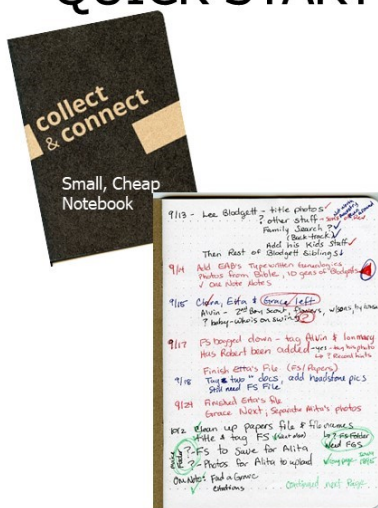 QUICK START
collect
& connect
Small, Cheap
Notebook
9/13 - Lee Blodgett - title photos ✓
? other stuff -
Family Search ? ✓
(Back-track)
Add his Kids Stuff ✓
Then Rest of Blodgett Siblings ↓
9/14 Add EAB's Typewritten Genealogies
Photos from Bible, 10 gens of Blodgetts
✓ One Note Notes
9/15 Clara, Etta & Grace left
Alvin - 2nd Boy Scout, Flowers, w/sons, by house
? baby - who's on swing ?
9/17 FS bogged down - tag Alvin &
Has Robert been added - yes - tag his photo
↳ ? Record hints
Finish Etta's File (FS/Papers)
9/18 Tag "two" docs, add headstone pics
Still need FS File
9/24 Finished Etta's file
Grace Next, Separate Alita's photos
10/2 Clean up papers file & file names
title & tag FS
↳ ? FS Folder
Need FGS
? - FS to Save for Alita
? - Photos for Alita to upload
One Note: Find a Grave
✓ citations
continued next page